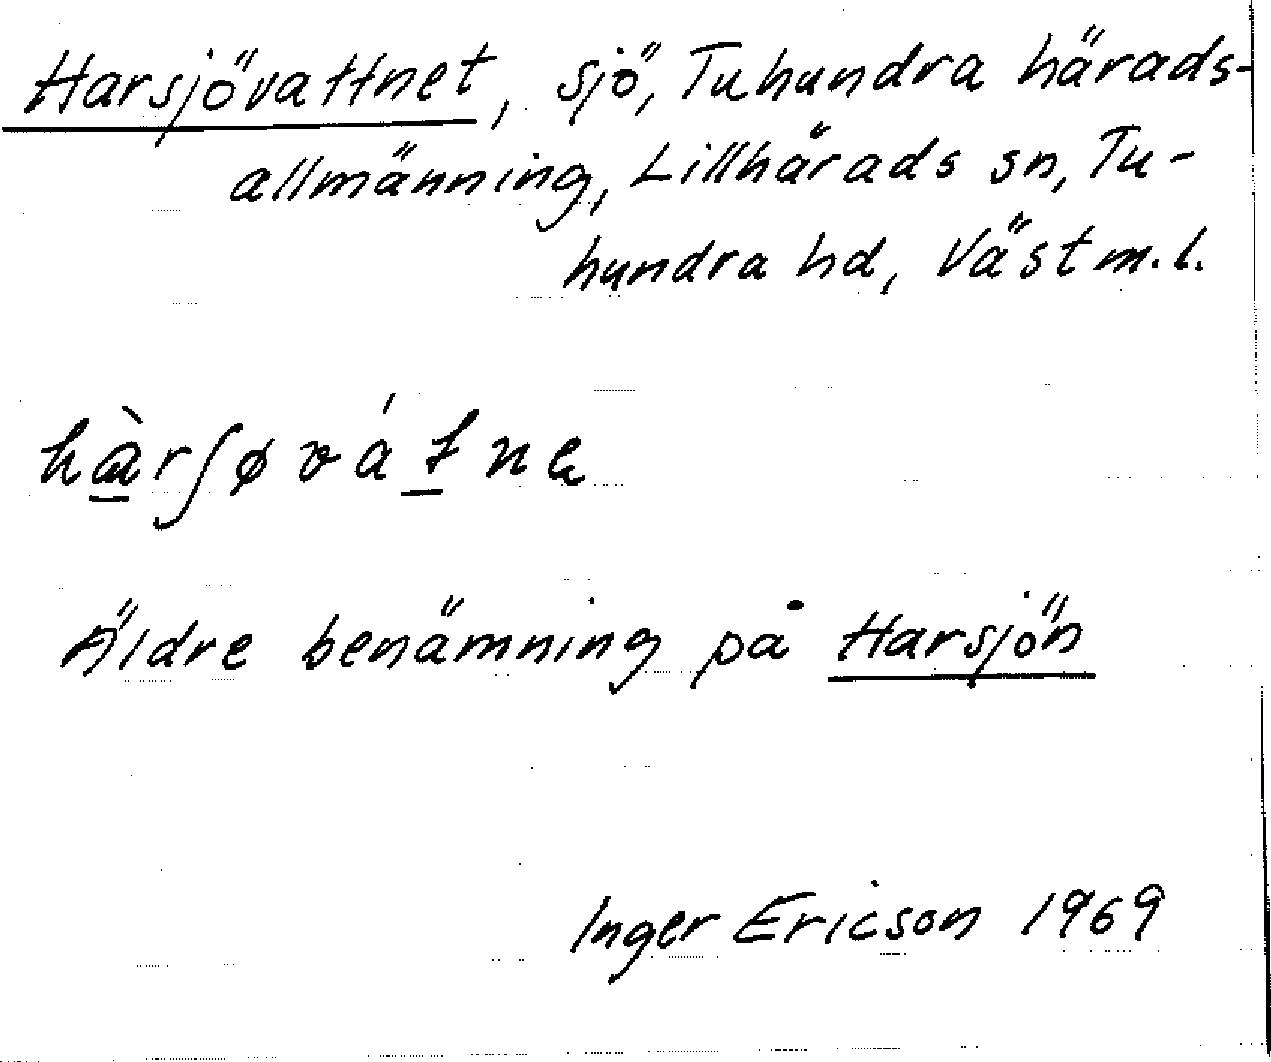 Harsjövattnet, sjö, Tuhundra härads-
allmänning, Lillhärads sn, Tu-
hundra hd, Västm.l.
hàrʃøvátnę
Äldre benämning på Harsjön
Inger Ericson 1969